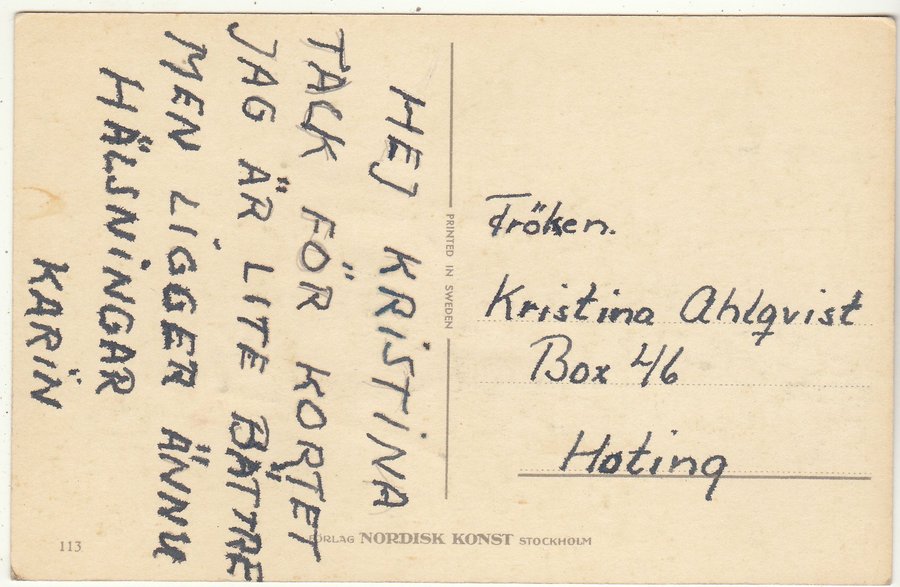 HEJ KRISTINA
TACK FÖR KORTET
JAG ÄR LITE BÄTTRE
MEN LIGGER ÄNNU
HÄLSNINGAR
KARIN
PRINTED IN SWEDEN
Fröken.
Kristina Ahlqvist
Box 46
Hoting
113
FÖRLAG NORDISK KONST STOCKHOLM